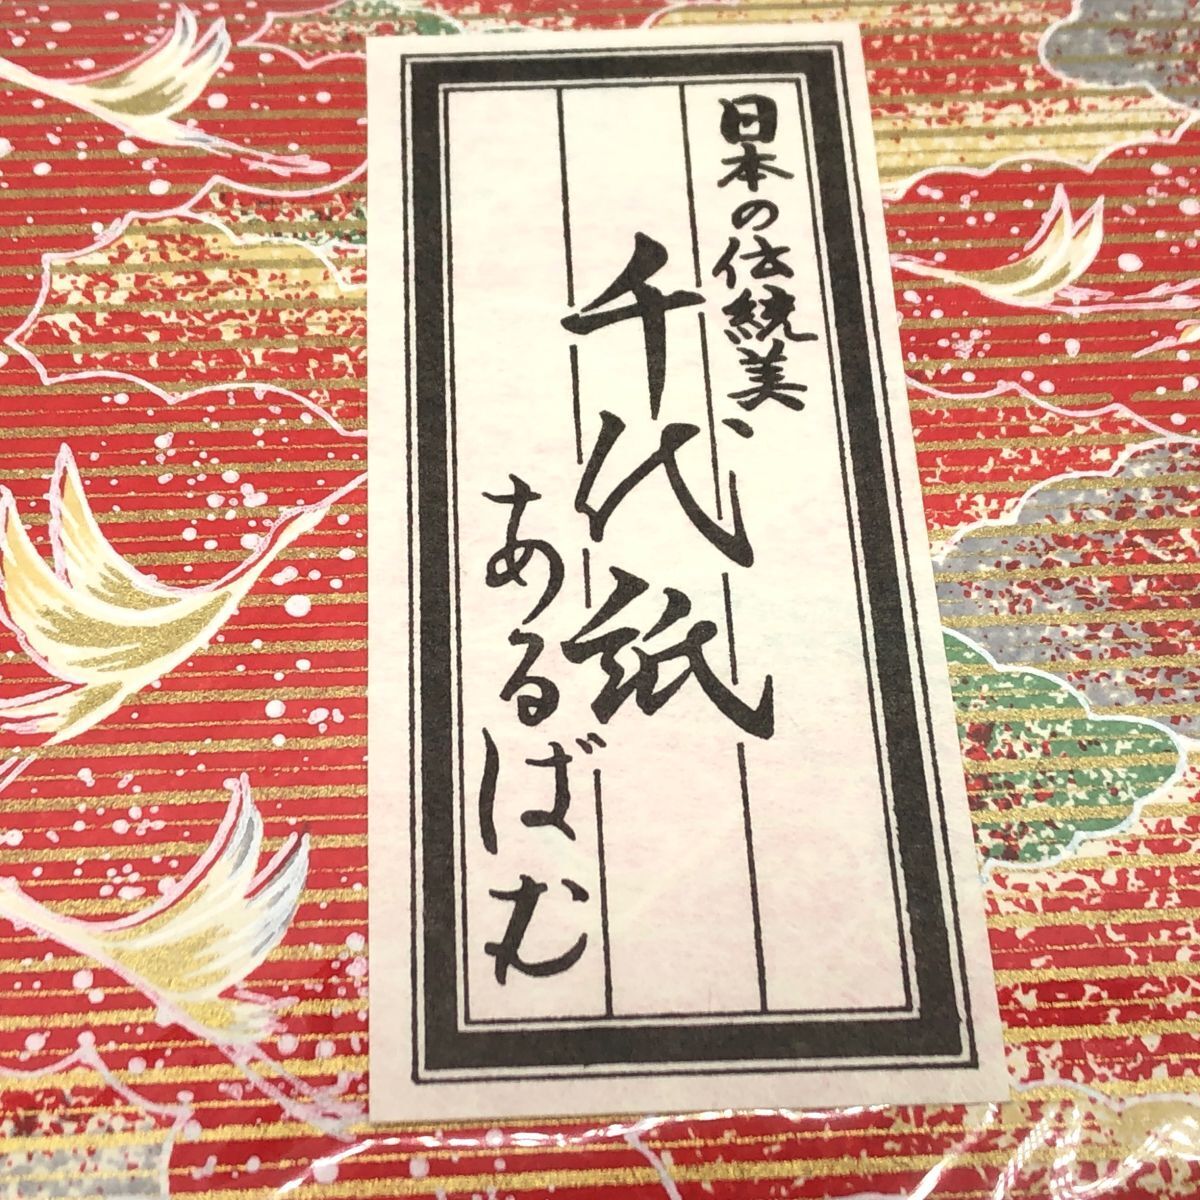 日本の伝統美
千代紙
あるばむ